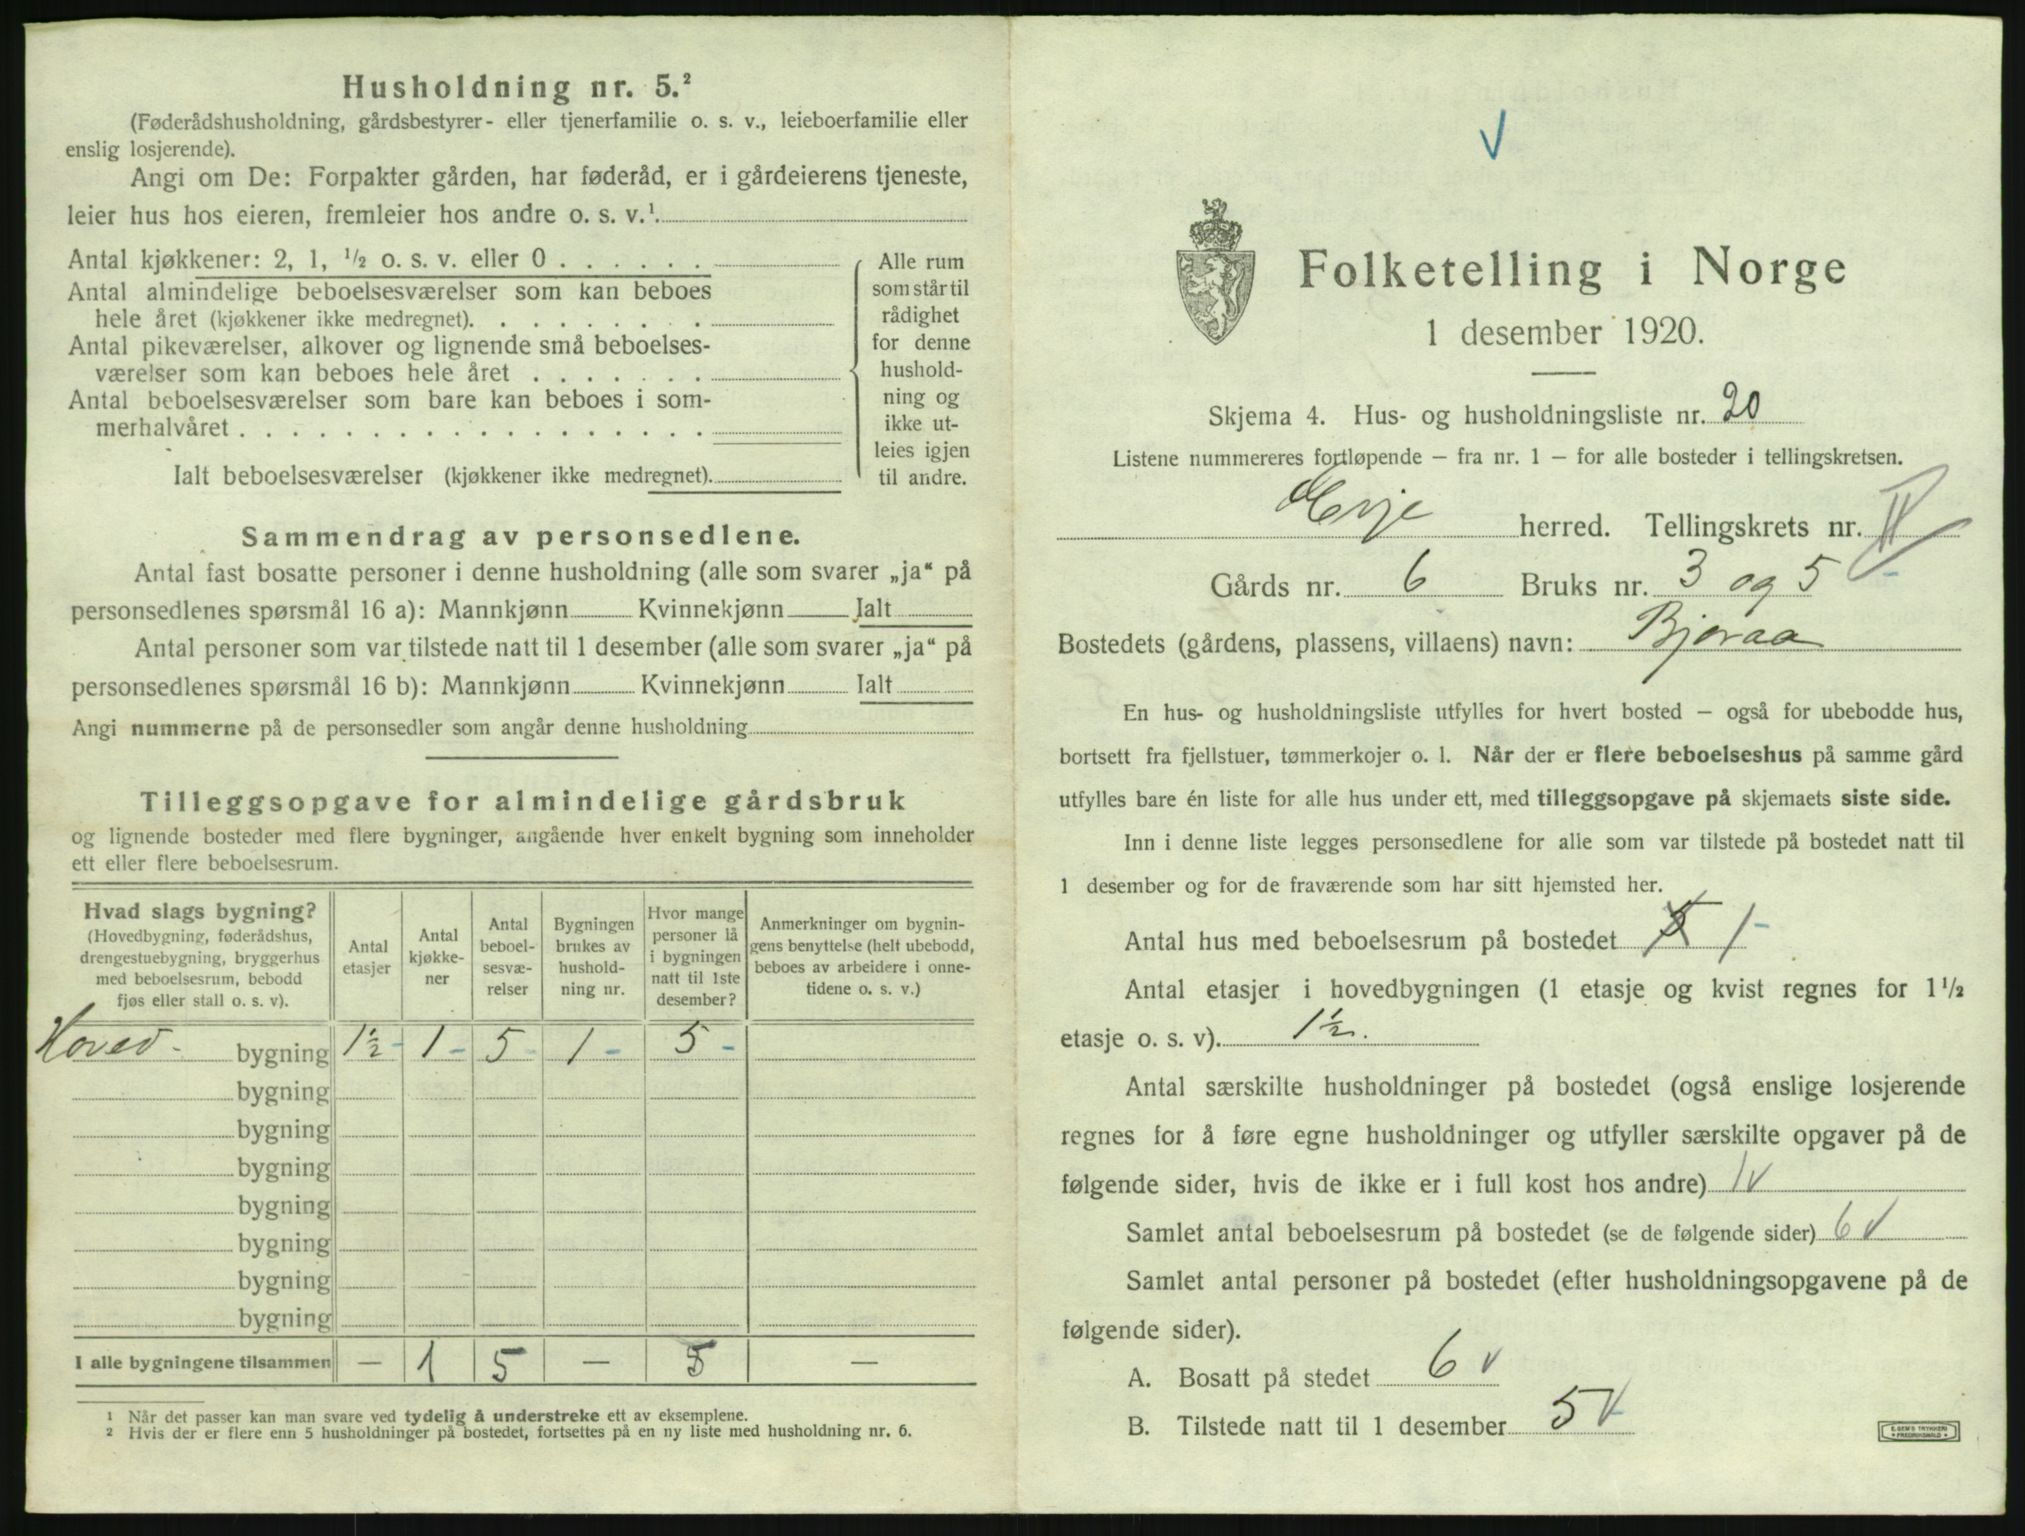 Husholdning nr. 5.²
(Føderådshusholdning, gårdsbestyrer- eller tjenerfamilie o. s. v., leieboerfamilie eller
enslig losjerende).
Angi om De: Forpakter gården, har føderåd, er i gårdeierens tjeneste,
leier hus hos eieren, fremleier hos andre o. s. v.¹
Antal kjøkkener: 2, 1, ½ o. s. v. eller 0
Antal almindelige beboelsesværelser som kan beboes
hele året (kjøkkener ikke medregnet).
Antal pikeværelser, alkover og lignende små beboelses-
værelser som kan beboes hele året
Antal beboelsesværelser som bare kan beboes i som-
merhalvåret
Ialt beboelsesværelser (kjøkkener ikke medregnet).
Alle rum
som står til
rådighet
for denne
hushold-
ning og
ikke ut-
leies igjen
til andre.
Sammendrag av personsedlene.
Antal fast bosatte personer i denne husholdning (alle som svarer „ja“ på
personsedlenes spørsmål 16 a): Mannkjønn Kvinnekjønn Ialt
Antal personer som var tilstede natt til 1 desember (alle som svarer „ja“ på
personsedlenes spørsmål 16 b): Mannkjønn Kvinnekjønn Ialt
Angi nummerne på de personsedler som angår denne husholdning
Tilleggsopgave for almindelige gårdsbruk
og lignende bosteder med flere bygninger, angående hver enkelt bygning som inneholder
ett eller flere beboelsesrum.
Hvad slags bygning?
(Hovedbygning, føderådshus,
drengestuebygning, bryggerhus
med beboelsesrum, bebodd
fjøs eller stall o. s. v).
Antal
etasjer
Antal
kjøkke-
ner
Antal
beboel-
sesvæ-
relser
Bygningen
brukes av
hushold-
ning nr.
Hvor mange
personer lå
i bygningen
natt til 1ste
desember?
Anmerkninger om bygnin-
gens benyttelse (helt ubebodd,
beboes av arbeidere i onne-
tidene o. s. v.)
Hoved- bygning 1½ - 1 - 5 - 1 - 5 -
bygning
bygning
bygning
bygning
bygning
bygning
bygning
I alle bygningene tilsammen — 1 5 — 5 —
¹ Når det passer kan man svare ved tydelig å understreke ett av eksemplene.
² Hvis der er flere enn 5 husholdninger på bostedet, fortsettes på en ny liste med husholdning nr. 6.
Folketelling i Norge
1 desember 1920.
Skjema 4. Hus- og husholdningsliste nr. 20
Listene nummereres fortløpende – fra nr. 1 – for alle bosteder i tellingskretsen.
Evje herred. Tellingskrets nr. II
Gårds nr. 6 Bruks nr. 3 og 5
Bostedets (gårdens, plassens, villaens) navn: Bjoraa
En hus- og husholdningsliste utfylles for hvert bosted – også for ubebodde hus,
bortsett fra fjellstuer, tømmerkojer o. l. Når der er flere beboelseshus på samme gård
utfylles bare én liste for alle hus under ett, med tilleggsopgave på skjemaets siste side.
Inn i denne liste legges personsedlene for alle som var tilstede på bostedet natt til
1 desember og for de fraværende som har sitt hjemsted her.
Antal hus med beboelsesrum på bostedet 5 1 -
Antal etasjer i hovedbygningen (1 etasje og kvist regnes for 1½
etasje o. s. v). 1½.
Antal særskilte husholdninger på bostedet (også enslige losjerende
regnes for å føre egne husholdninger og utfyller særskilte opgaver på de
følgende sider, hvis de ikke er i full kost hos andre) 1 v
Samlet antal beboelsesrum på bostedet (se de følgende sider) 6 v
Samlet antal personer på bostedet (efter husholdningsopgavene på de
følgende sider).
A. Bosatt på stedet 6 v
B. Tilstede natt til 1 desember 5 v